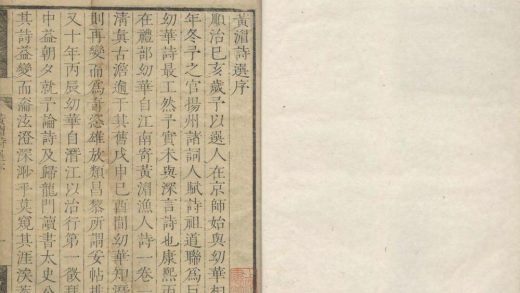 黃湄詩選序
順治己亥歲予以選人在京師始與幼華相
年冬予之官揚州諸詞人賦詩祖道聯爲巨
幼華詩最工然予實未與深言詩也康熙丙
在禮部幼華自江南寄黃湄漁人詩一卷
清眞古澹逾于其舊戊申己酉間幼華知
則再變而爲奇恣雄放類昌黎所謂妥帖排
又十年丙辰幼華自潛江以治行第一徵拜
中益朝夕就予論詩及歸龍門讀書太史公
其詩益變而瀹泫澄深渺乎莫窺其涯涘